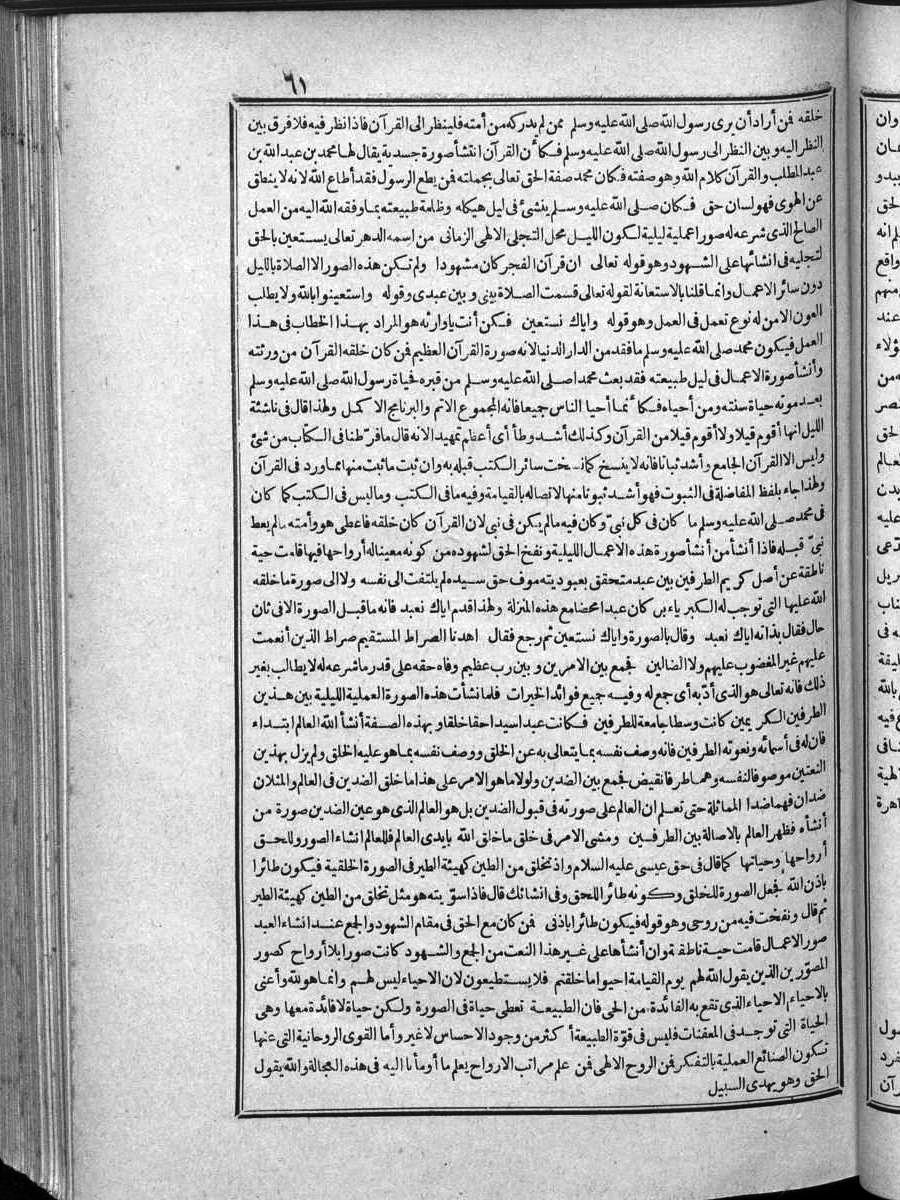 ٦١
خلقه فمن أراد أن يرى رسول الله صلى الله عليه وسلم ممن لم يدركه من أمته فلينظر الى القرآن فاذا نظر فيه فلا فرق بين
النظر اليه و بين النظر الى رسول الله صلى الله عليه وسلم فكأن القرآن انتشأ صورة جسدية يقال لها محمد بن عبد الله بن
عبد المطلب والقرآن كلام الله وهو صفته فكان محمد صفة الحق تعالى بجملته فمن يطع الرسول فقد أطاع الله لانه لا ينطق
عن الهوى فهو لسان حق فكان صلى الله عليه وسلم ينشئ فى ليل هيكله وظلمة طبيعته بما وفقه الله اليه من العمل
الصالح الذى شرعه له صورا عملية ليلية لكون الليل محل التجلى الالهى الزمانى من اسمه الدهر تعالى يستعين بالحق
لتجليه فى انشائها على الشهود وهو قوله تعالى ان قرآن الفجر كان مشهودا ولم تكن هذه الصور الا الصلاة بالليل
دون سائر الاعمال وانما قلنا بالاستعانة لقوله تعالى قسمت الصلاة بينى و بين عبدى وقوله واستعينوا بالله ولا يطلب
العون الا من له نوع تعمل فى العمل وهو قوله واياك نستعين فكن أنت ياوارثه هو المراد بهذا الخطاب فى هذا
العمل فيكون محمد صلى الله عليه وسلم ما فقد من الدار الدنيا لانه صورة القرآن العظيم فمن كان خلقه القرآن من ورثته
وأنشأ صورة الاعمال فى ليل طبيعته فقد بعث محمدا صلى الله عليه وسلم من قبره فحياة رسول الله صلى الله عليه وسلم
بعد موته حياة سنته ومن أحياه فكأنما أحيا الناس جميعا فانه المجموع الاتم والبرنامج الاكمل ولهذا قال فى ناشئة
الليل انها أقوم قيلا ولا أقوم قيلا من القرآن وكذلك أشد وطأ أى أعظم تمهيدا لانه قال ما فرّطنا فى الكتاب من شئ
وليس الا القرآن الجامع وأشد ثباتا فانه لا ينسخ كما نسخت سائر الكتب قبله به وان ثبت ما ثبت منها مما ورد فى القرآن
ولهذا جاء بلفظ المفاضلة فى الثبوت فهو أشد ثبوتا منها لاتصاله بالقيامة وفيه ما فى الكتب وما ليس فى الكتب كما كان
فى محمد صلى الله عليه وسلم ما كان فى كل نبىّ وكان فيه ما لم يكن فى نبى لان القرآن كان خلقه فاعطى هو وأمته ما لم يعط
نبىّ قبله فاذا أنشأ من أنشأ صورة هذه الاعمال الليلية ونفخ الحق لشهوده من كونه معيناله أرواحها فيها قامت حية
ناطقة عن أصل كريم الطرفين بين عبد متحقق بعبوديته موف حق سيده لم يلتفت الى نفسه ولا الى صورة ما خلقه
الله عليها التى توجب له الكبرياء بل كان عبدا محضا مع هذه المنزلة ولهذا قدم اياك نعبد فانه ما قبل الصورة الا فى ثان
حال فقال بذاته اياك نعبد وقال بالصورة واياك نستعين ثم رجع فقال اهدنا الصراط المستقيم صراط الذين أنعمت
عليهم غير المغضوب عليهم ولا الضالين فجمع بين الامرين و بين رب عظيم وفاه حقه على قدر ما شرعه له لا يطالب بغير
ذلك فانه تعالى هو الذى أدّبه أى جمع له وفيه جميع فوائد الخيرات فلما نشأت هذه الصورة العملية الليلية بين هذين
الطرفين الكريمين كانت وسطا جامعة للطرفين فكانت عبدا سيدا حقا خلقا و بهذه الصفة أنشأ الله العالم ابتداء
فان له فى أسمائه ونعوته الطرفين فانه وصف نفسه بما يتعالى به عن الخلق ووصف نفسه بما هو عليه الخلق ولم يزل بهذين
النعتين موصوفا لنفسه وهما طرفا نقيض فجمع بين الضدين ولولا ما هو الامر على هذا ما خلق الضدين فى العالم والمثلان
ضدان فهما ضدا المماثلة حتى تعلم ان العالم على صورته فى قبول الضدين بل هو العالم الذى هو عين الضدين صورة من
أنشأه فظهر العالم بالاصالة بين الطرفين ومشى الامر فى خلق ما خلق الله بايدى العالم فللعالم انشاء الصور وللحق
أرواحها وحياتها كما قال فى حق عيسى عليه السلام واذ تخلق من الطين كهيئة الطير فى الصورة الخلقية فيكون طائرا
باذن الله فجعل الصورة للخلق وكونه طائرا للحق وفى انشائك قال فاذا سوّيته هو مثل تخلق من الطين كهيئة الطير
ثم قال ونفخت فيه من روحى وهو قوله فيكون طائرا باذنى فمن كان مع الحق فى مقام الشهود والجمع عند انشاء العبد
صور الاعمال قامت حية ناطقة وان أنشأها على غير هذا النعت من الجمع والشهود كانت صورا بلا أرواح كصور
المصوّرين الذين يقول الله لهم يوم القيامة احيوا ما خلقتم فلا يستطيعون لان الاحياء ليس لهم وانما هو لله وأعنى
بالاحياء الاحياء الذى تقع به الفائدة من الحى فان الطبيعة تعطى حياة فى الصورة ولكن حياة لا فائدة معها وهى
الحياة التى توجد فى المعفنات فليس فى قوّة الطبيعة أكثر من وجود الاحساس لا غير وأما القوى الروحانية التى عنها
تكون الصنائع العملية بالتفكر فمن الروح الالهى فمن علم مراتب الارواح يعلم ما أومأنا اليه فى هذه العجالة والله يقول
الحق وهو يهدى السبيل